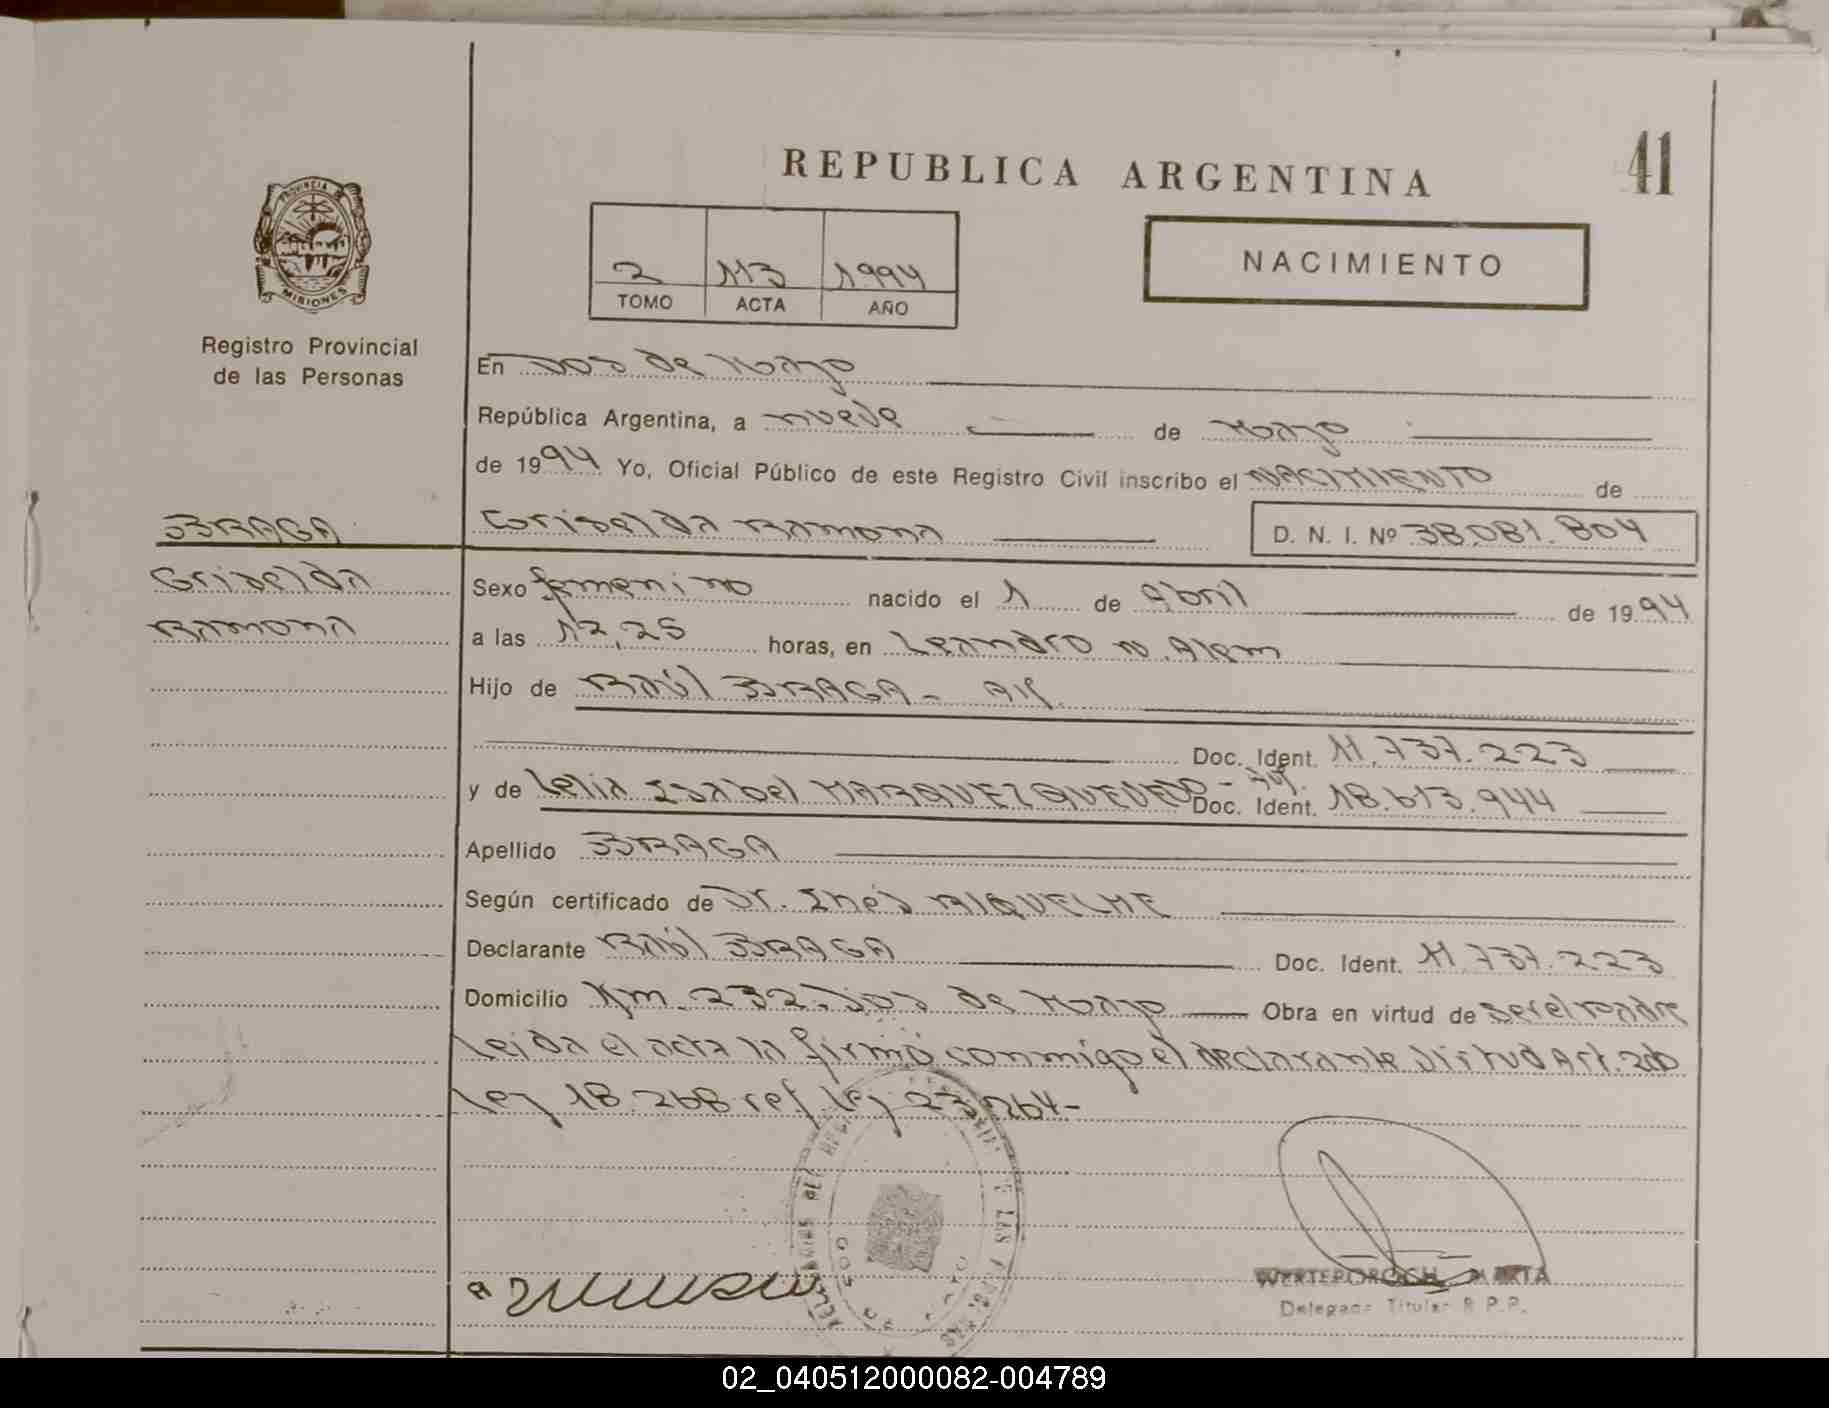 41
REPUBLICA ARGENTINA
PROVINCIA
MISIONES
NACIMIENTO
2 113 1994
TOMO ACTA AÑO
Registro Provincial
de las Personas
En Dos de Mayo
República Argentina, a nueve de Mayo
de 1994 Yo, Oficial Público de este Registro Civil inscribo el NACIMIENTO de
BRAGA
Griselda Ramona
D. N. I. Nº 38.081.804
Griselda
Ramona
Sexo femenino nacido el 1 de Abril de 1994
a las 12,25 horas, en Leandro N. Alem
Hijo de Raúl BRAGA -
Doc. Ident. 11.737.223
y de Lelia Isabel MARQUEZ QUEVEDO -
Doc. Ident. 18.613.944
Apellido BRAGA
Según certificado de Dr. Inés RIQUELME
Declarante Raúl BRAGA Doc. Ident. 11.737.223
Domicilio Km. 232. Dos de Mayo Obra en virtud de ser el padre
Leida el acta la firmó conmigo el declarante virtud Art.
Ley 18.268 ref. Ley 23.264-
WERTEPOROCH MARTA
Delegada Titular R.P.P.
02_040512000082-004789